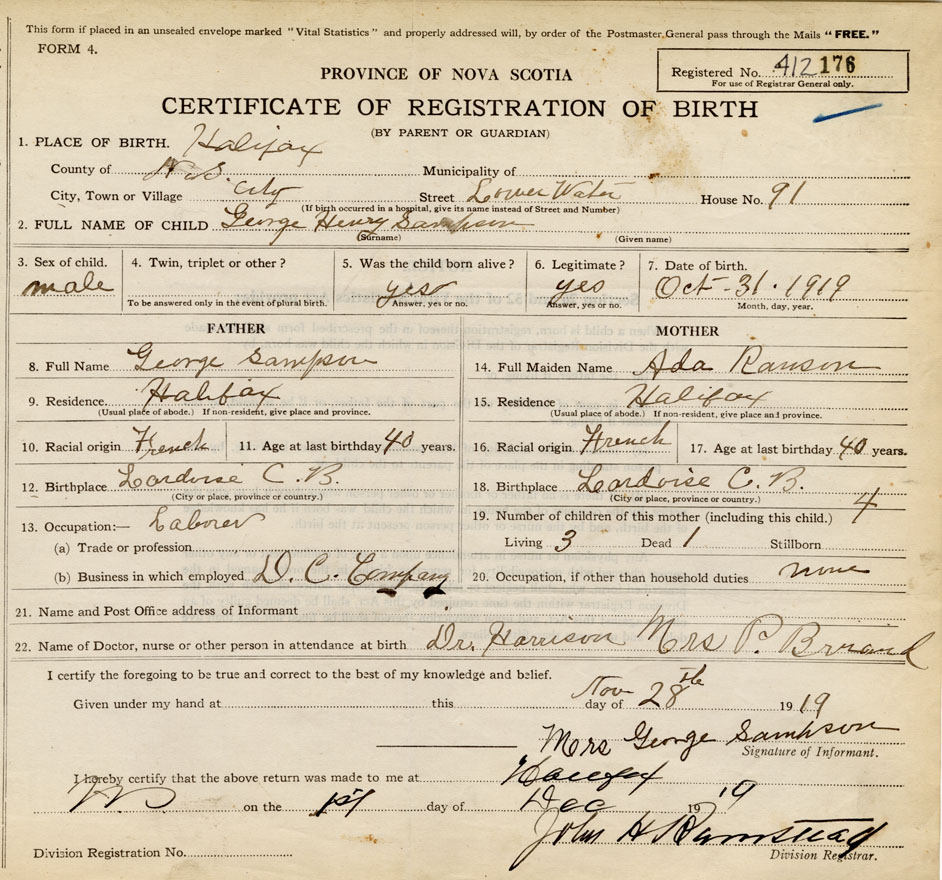 This form if placed in an unsealed envelope marked "Vital Statistics" and properly addressed will, by order of the Postmaster General pass through the Mails "FREE."
FORM 4.
Registered No. 412 176
For use of Registrar General only.
PROVINCE OF NOVA SCOTIA
CERTIFICATE OF REGISTRATION OF BIRTH
(BY PARENT OR GUARDIAN)
1. PLACE OF BIRTH. Halifax
County of N.S. Municipality of
City, Town or Village City Street Lower Water House No. 91
(If birth occurred in a hospital, give its name instead of Street and Number)
2. FULL NAME OF CHILD George Henry Sampson
(Surname) (Given name)
3. Sex of child. 4. Twin, triplet or other? 5. Was the child born alive? 6. Legitimate? 7. Date of birth.
male yes yes Oct-31.1919
To be answered only in the event of plural birth. Answer, yes or no. Answer, yes or no. Month, day, year.
FATHER MOTHER
8. Full Name George Sampson 14. Full Maiden Name Ada Ranson
9. Residence. Halifax 15. Residence Halifax
(Usual place of abode.) If non-resident, give place and province. (Usual place of abode.) If non-resident, give place and province.
10. Racial origin French 11. Age at last birthday 40 years. 16. Racial origin French 17. Age at last birthday 40 years.
12. Birthplace Lardoise C.B. 18. Birthplace Lardoise C.B.
(City or place, province or country.) (City or place, province or country.)
13. Occupation:— Laborer 19. Number of children of this mother (including this child.) 4
(a) Trade or profession Living 3 Dead 1 Stillborn
(b) Business in which employed D. C. Company 20. Occupation, if other than household duties none
21. Name and Post Office address of Informant
22. Name of Doctor, nurse or other person in attendance at birth Dr. Harrison Mrs P.
I certify the foregoing to be true and correct to the best of my knowledge and belief.
Given under my hand at this Nov 28th day of 1919
Mrs George Sampson
Signature of Informant.
I hereby certify that the above return was made to me at Halifax
NS on the 1st day of Dec 1919
John H
Division Registration No. Division Registrar.